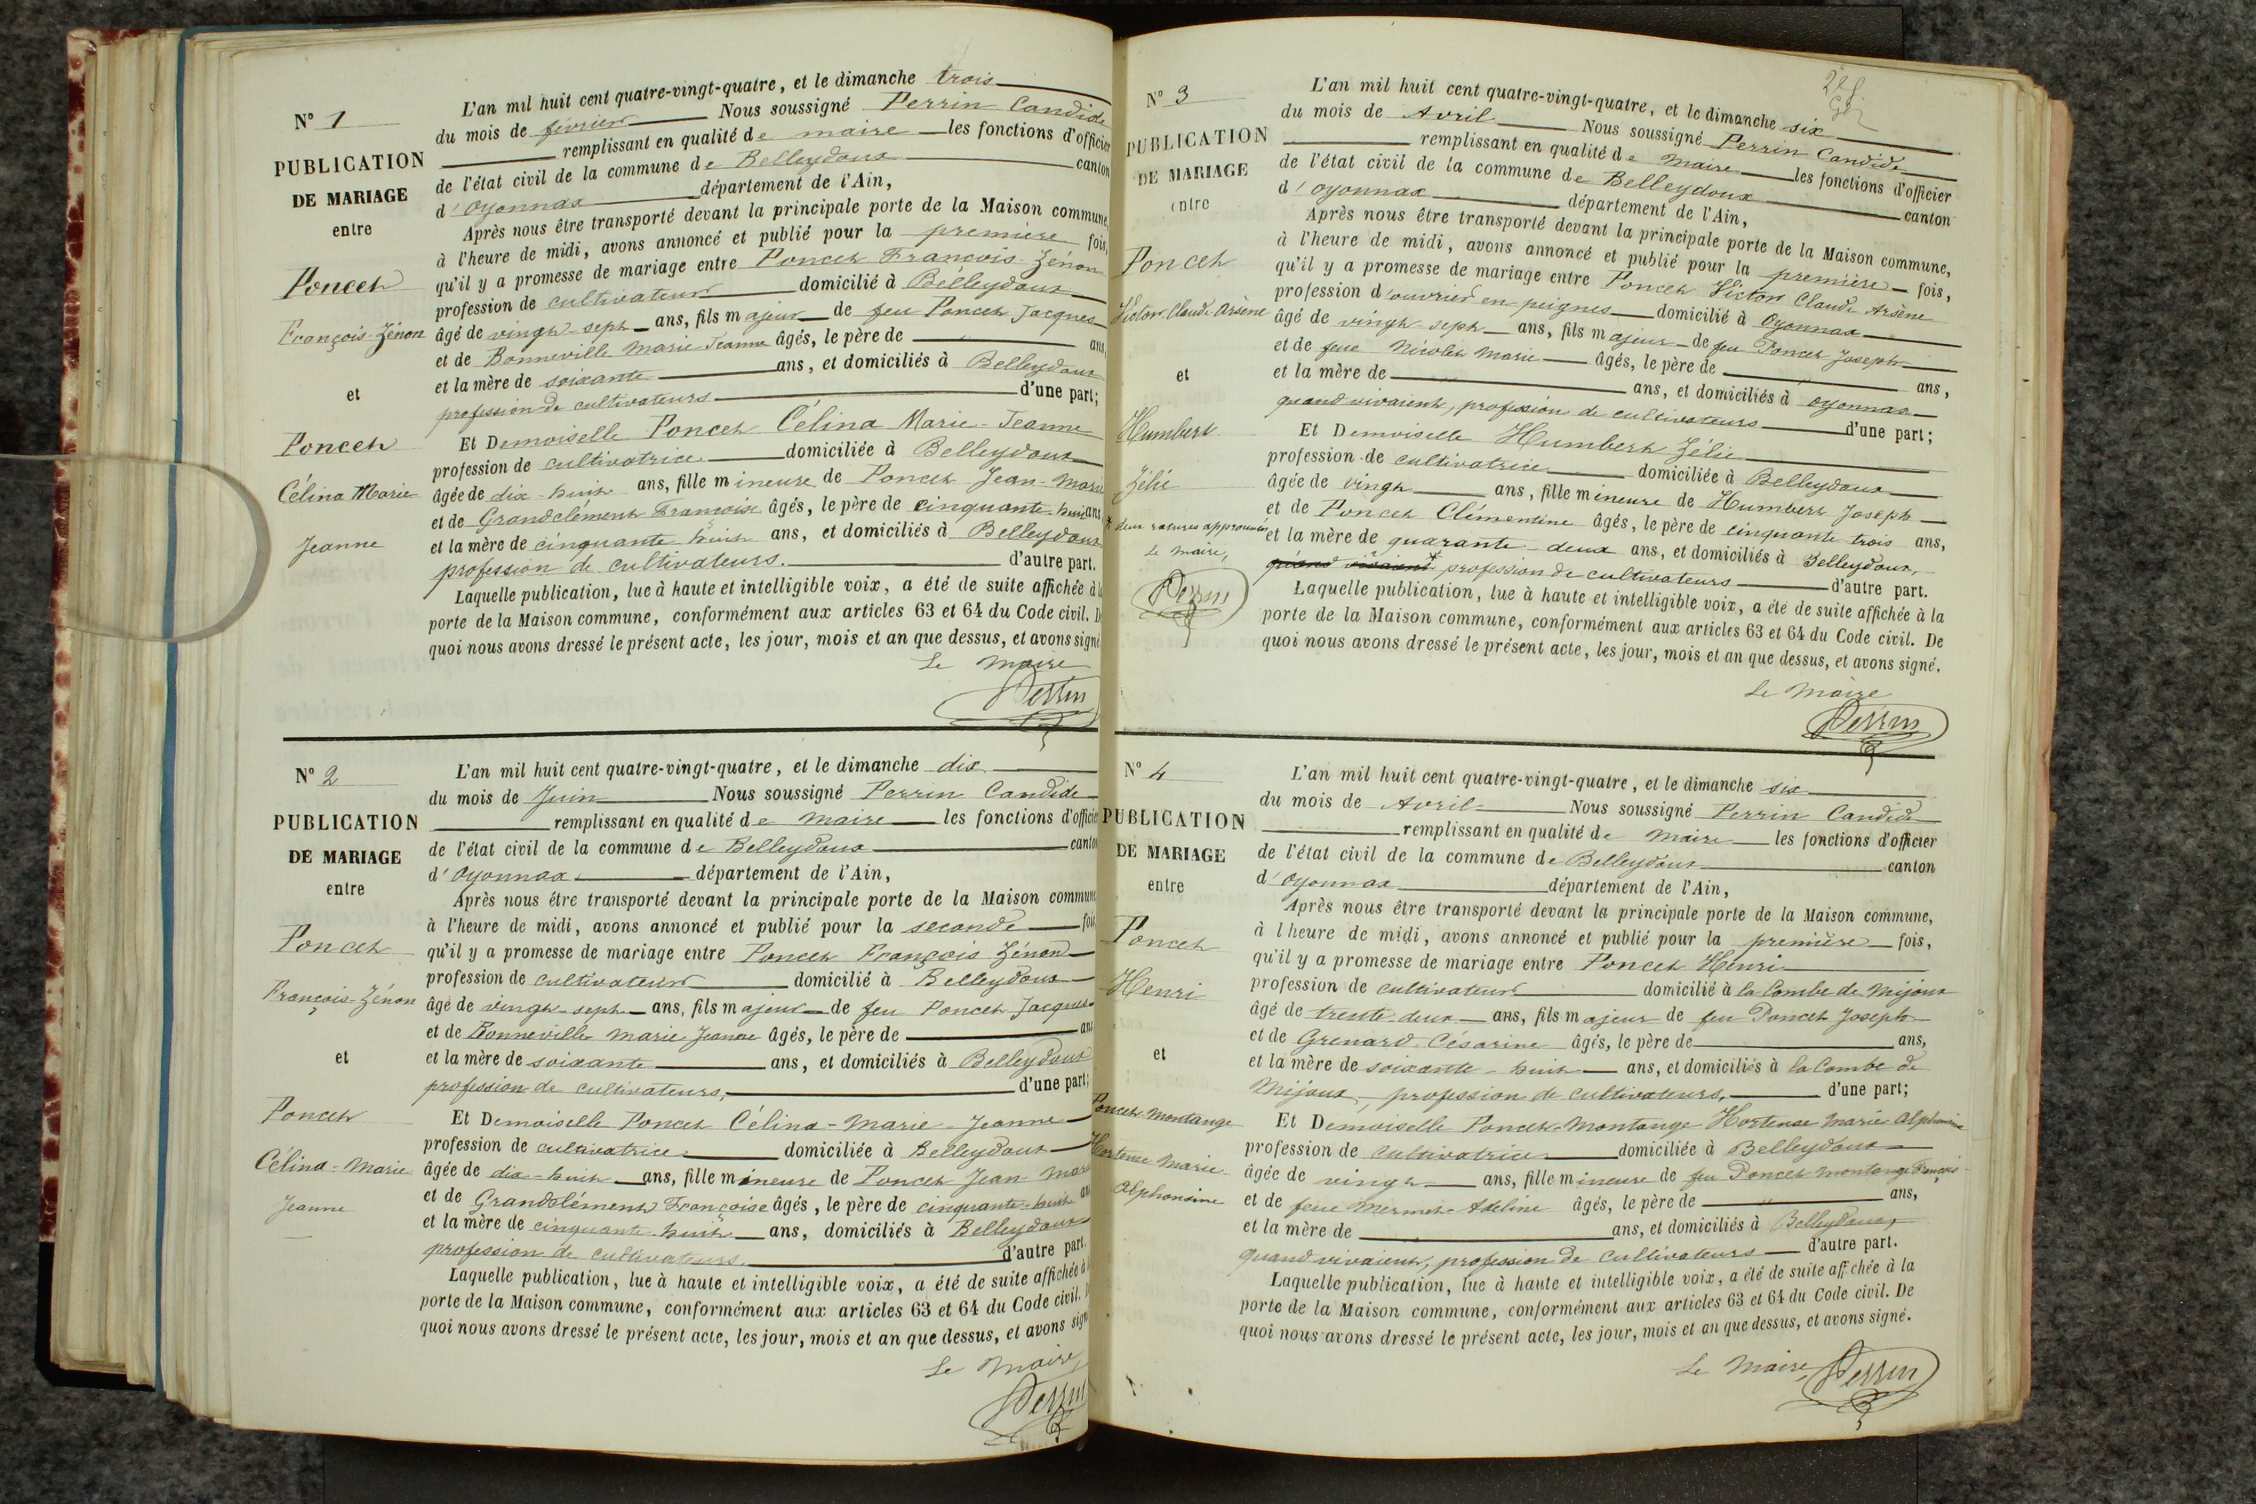 N° 1
PUBLICATION
DE MARIAGE
entre
Poncet
François-Zénon
et
Poncet
Célina Marie
Jeanne
L'an mil huit cent quatre-vingt-quatre, et le dimanche trois
du mois de février Nous soussigné Perrin Candide
remplissant en qualité de maire les fonctions d'officier
de l'état civil de la commune de Belleydoux canton
d'Oyonnax département de l'Ain,
Après nous être transporté devant la principale porte de la Maison commune,
à l'heure de midi, avons annoncé et publié pour la première fois,
qu'il y a promesse de mariage entre Poncet François Zénon
profession de cultivateur domicilié à Belleydoux
âgé de vingt-sept ans, fils majeur de feu Poncet Jacques
et de Bonneville Marie Jeanne âgés, le père de ans,
et la mère de soixante ans, et domiciliés à Belleydoux
profession de cultivateurs d'une part;
Et Demoiselle Poncet Célina Marie-Jeanne
profession de cultivatrice domiciliée à Belleydoux
âgée de dix-huit ans, fille mineure de Poncet Jean-Marie
et de Grandclément Françoise âgés, le père de cinquante-huit ans
et la mère de cinquante huit ans, et domiciliés à Belleydoux
profession de cultivateurs. d'autre part.
Laquelle publication, lue à haute et intelligible voix, a été de suite affichée à la
porte de la Maison commune, conformément aux articles 63 et 64 du Code civil. D
quoi nous avons dressé le présent acte, les jour, mois et an que dessus, et avons signé
Le Maire
Perrin
N° 2
PUBLICATION
DE MARIAGE
entre
Poncet
François-Zénon
et
Poncet
Célina-Marie
Jeanne
L'an mil huit cent quatre-vingt-quatre, et le dimanche dix
du mois de Juin Nous soussigné Perrin Candide
remplissant en qualité de Maire les fonctions d'officie
de l'état civil de la commune de Belleydoux canton
d'Oyonnax département de l'Ain,
Après nous être transporté devant la principale porte de la Maison commune
à l'heure de midi, avons annoncé et publié pour la seconde fois
qu'il y a promesse de mariage entre Poncet François Zénon
profession de cultivateur domicilié à Belleydoux
âgé de vingt-sept ans, fils majeur de feu Poncet Jacques
et de Bonneville Marie Jeanne âgés, le père de ans
et la mère de soixante ans, et domiciliés à Belleydoux
profession de cultivateurs, d'une part;
Et Demoiselle Poncet Célina-Marie-Jeanne
profession de cultivatrice domiciliée à Belleydoux
âgée de dix-huit ans, fille mineure de Poncet Jean-Marie
et de Grandclément Françoise âgés, le père de cinquante-huit ans
et la mère de cinquante huit ans, domiciliés à Belleydoux
profession de cultivateurs. d'autre part.
Laquelle publication, lue à haute et intelligible voix, a été de suite affichée à
porte de la Maison commune, conformément aux articles 63 et 64 du Code civil. D
quoi nous avons dressé le présent acte, les jour, mois et an que dessus, et avons sign
Le Maire
Perrin
N° 3
PUBLICATION
DE MARIAGE
entre
Poncet
Victor Claude Arsène
et
Humbert
Zélie
* deux ratures approuvées
Le Maire,
Perrin
L'an mil huit cent quatre-vingt-quatre, et le dimanche six
du mois de Avril Nous soussigné Perrin Candide
remplissant en qualité de Maire les fonctions d'officier
de l'état civil de la commune de Belleydoux canton
d'Oyonnax département de l'Ain,
Après nous être transporté devant la principale porte de la Maison commune,
à l'heure de midi, avons annoncé et publié pour la première fois,
qu'il y a promesse de mariage entre Poncet Victor Claude Arsène
profession d'ouvrier en peignes domicilié à Oyonnax
âgé de vingt-sept ans, fils majeur de feu Poncet Joseph
et de feue Nicolet Marie âgés, le père de ans,
et la mère de ans, et domiciliés à Oyonnax
quand vivaient, profession de cultivateurs d'une part;
Et Demoiselle Humbert Zélie
profession de cultivatrice domiciliée à Belleydoux
âgée de vingt ans, fille mineure de Humbert Joseph
et de Poncet Clémentine âgés, le père de cinquante trois ans,
et la mère de quarante-deux ans, et domiciliés à Belleydoux,
quand vivaient* profession de cultivateurs d'autre part.
Laquelle publication, lue à haute et intelligible voix, a été de suite affichée à la
porte de la Maison commune, conformément aux articles 63 et 64 du Code civil. De
quoi nous avons dressé le présent acte, les jour, mois et an que dessus, et avons signé.
Le Maire
Perrin
N° 4
PUBLICATION
DE MARIAGE
entre
Poncet
Henri
et
Poncet Montange
Hortense Marie
Alphonsine
L'an mil huit cent quatre-vingt-quatre, et le dimanche six
du mois de Avril Nous soussigné Perrin Candide
remplissant en qualité de Maire les fonctions d'officier
de l'état civil de la commune de Belleydoux canton
d'Oyonnax département de l'Ain,
Après nous être transporté devant la principale porte de la Maison commune,
à l'heure de midi, avons annoncé et publié pour la première fois,
qu'il y a promesse de mariage entre Poncet Henri
profession de cultivateur domicilié à la Combe de Mijoux
âgé de trente-deux ans, fils majeur de feu Poncet Joseph
et de Grenard Césarine âgés, le père de ans,
et la mère de soixante-huit ans, et domiciliés à la Combe de
Mijoux, profession de cultivateurs, d'une part;
Et Demoiselle Poncet-Montange Hortense Marie Alphonsine
profession de cultivatrice domiciliée à Belleydoux
âgée de vingt ans, fille mineure de feu Poncet Montange François
et de feue Mermet Adeline âgés, le père de ans,
et la mère de ans, et domiciliés à Belleydoux,
quand vivaient, profession de cultivateurs d'autre part.
Laquelle publication, lue à haute et intelligible voix, a été de suite affichée à la
porte de la Maison commune, conformément aux articles 63 et 64 du Code civil. De
quoi nous avons dressé le présent acte, les jour, mois et an que dessus, et avons signé.
Le Maire,
Perrin